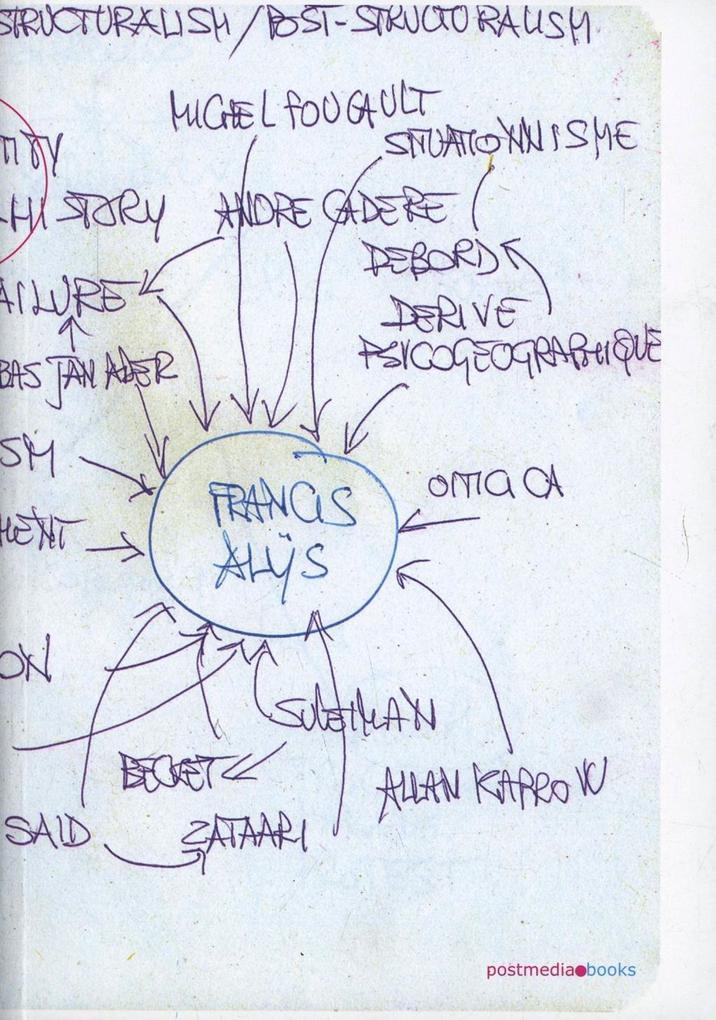 STRUCTURALISM / POST-STRUCTURALISM
MICHEL FOUCAULT
SITUATIONNISME
TITY
HISTORY
ANDRE CADERE
DEBORD
AILURE
DERIVE
PSICOGEOGRAPHIQUE
BAS JAN ADER
SM
OITICICA
FRANCIS
ALŸS
MENT
ON
SULEIMAN
BECKET
ALLAN KAPROW
SAID
ZATAARI
postmedia●books